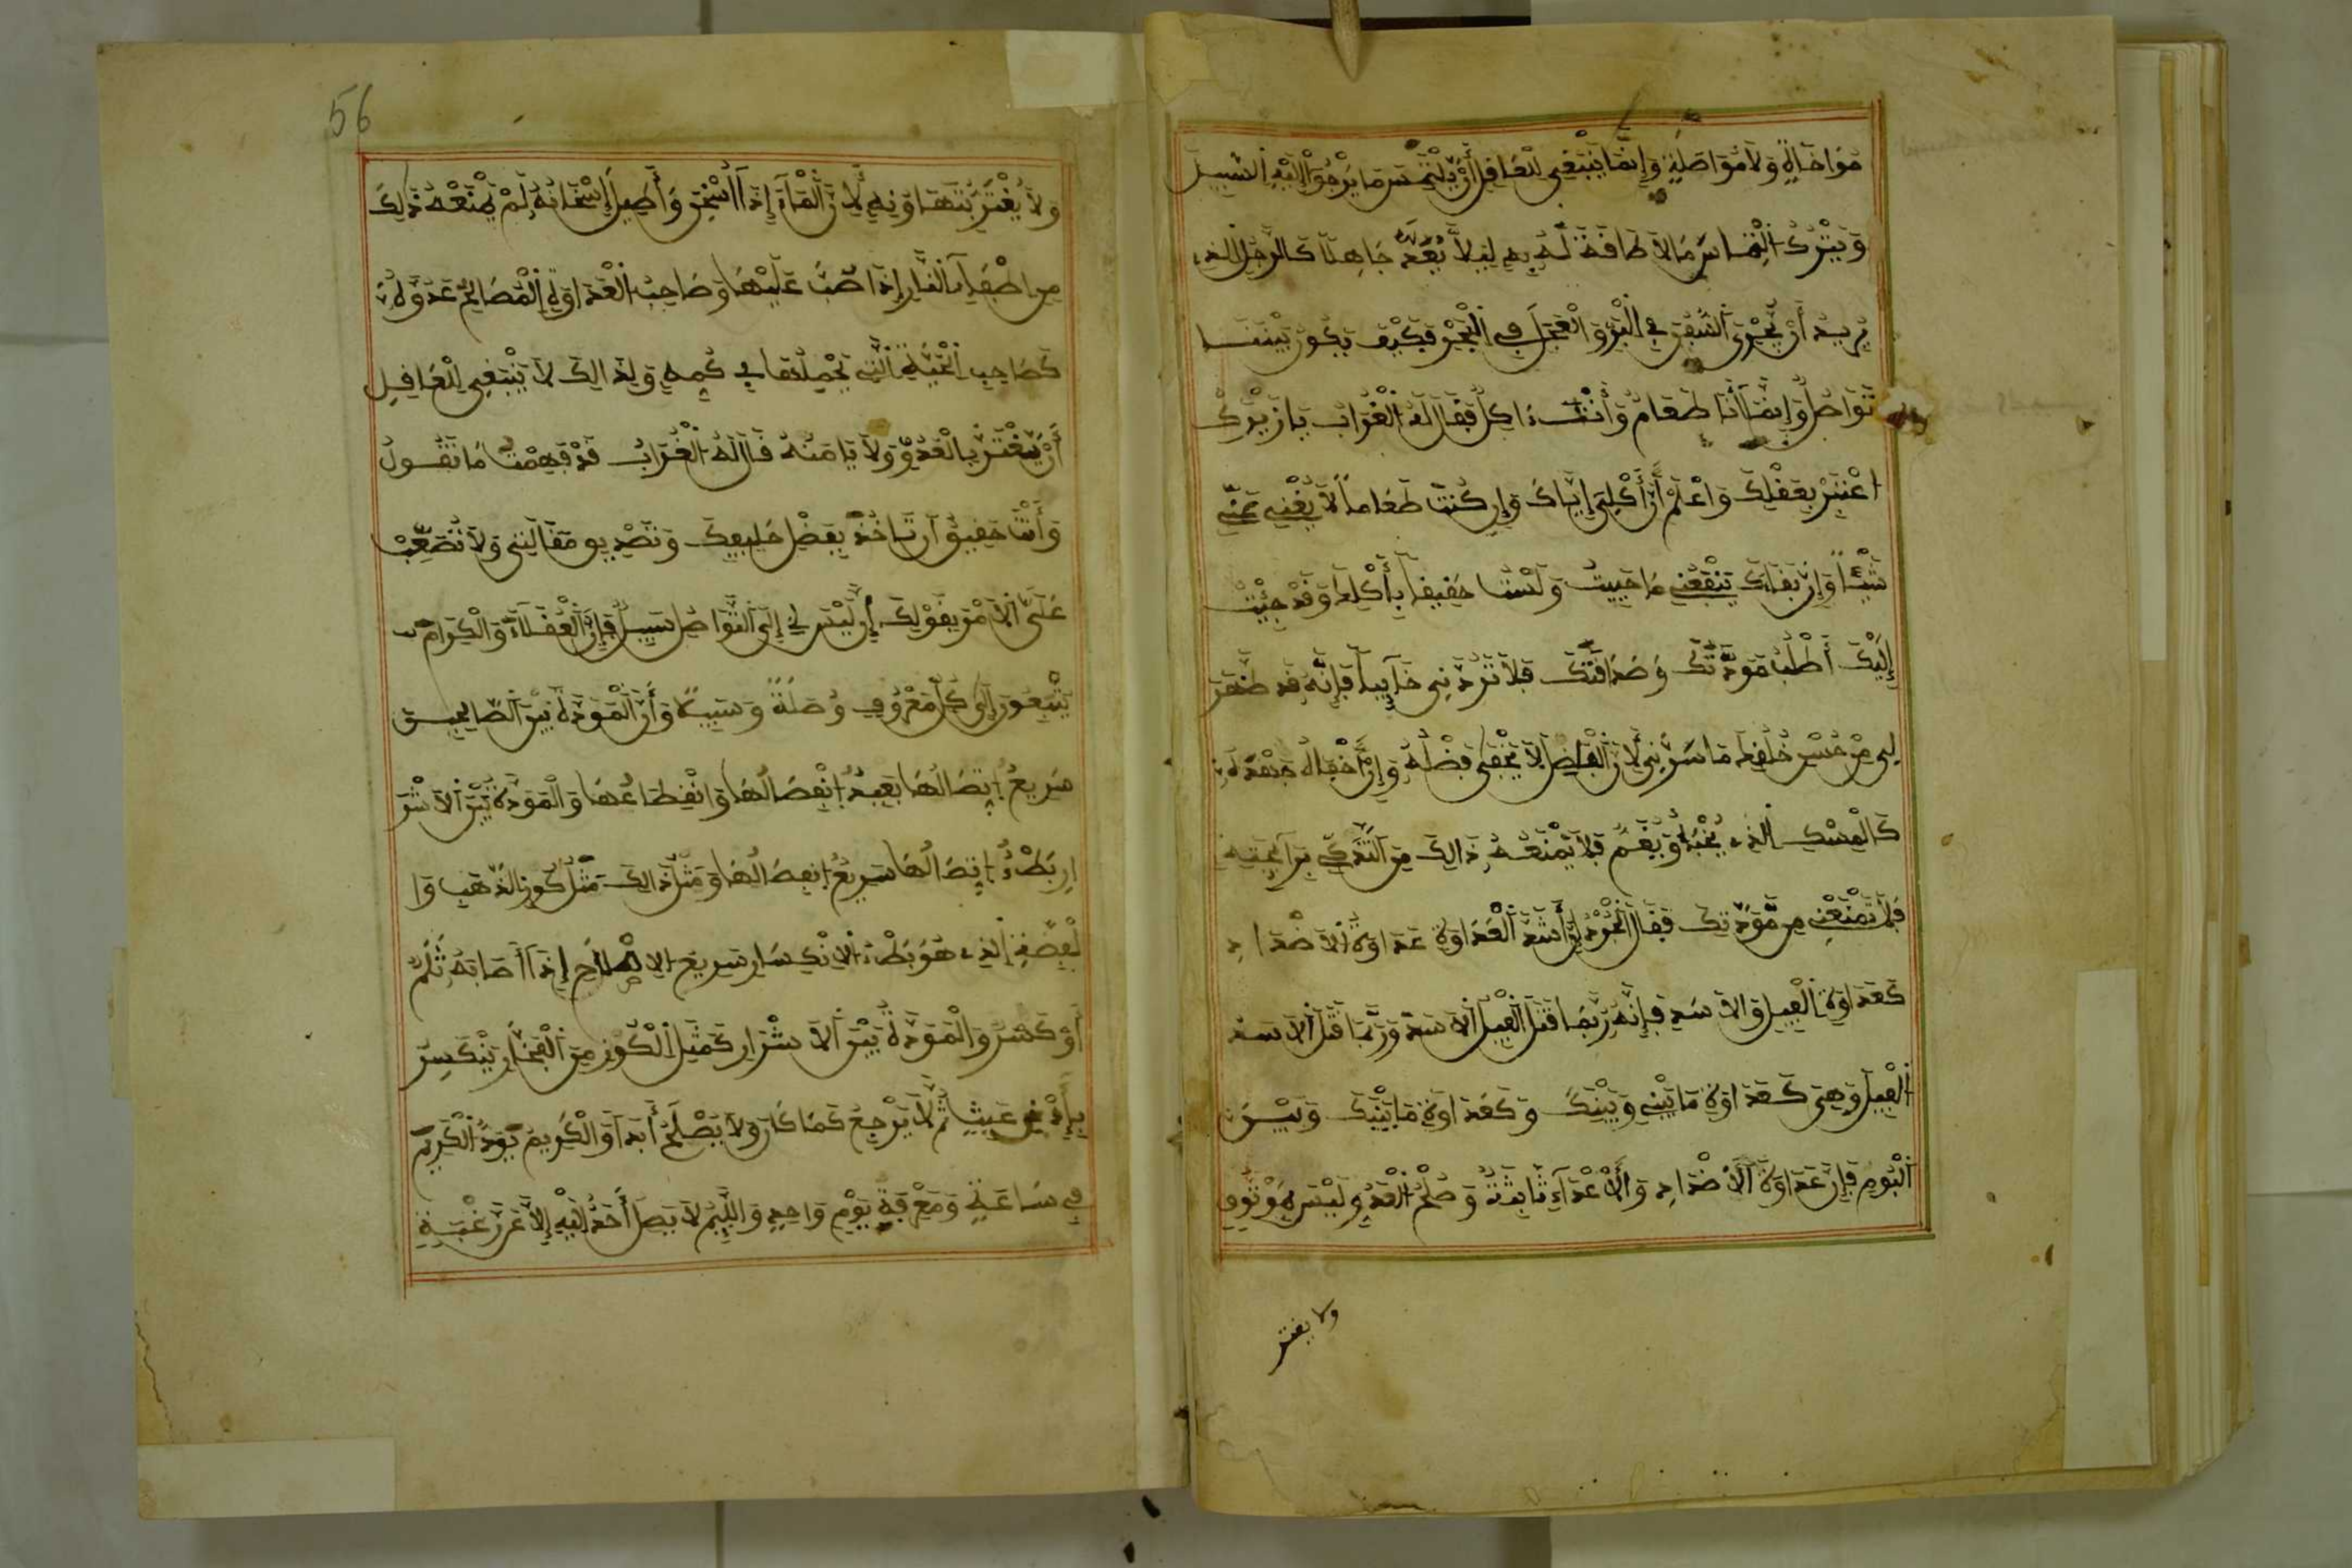 مُوَاخَاةٍ وَلَا مُوَاصَلَةٍ وَإِنَّمَا يَنْبَغِي لِلْعَاقِلِ أَنْ يَلْتَمِسَ مَا يَرْجُوْ إِلَيْهِ السَّبِيلَ
وَيَتْرُكَ الْتِمَاسَ مَا لَا طَاقَةَ لَهُ بِهِ لِيَلَّا يُعَدَّ جَاهِلًا كَالرَّجُلِ الذِي
يُرِيدُ أَنْ يُجْرِيَ السُّفُنَ فِي الْبَرِّ وَالْعَجَلَ فِي الْبَحْرِ فَكَيْفَ يَكُونُ بَيْنَنَا
تَوَاصُلٌ وَإِنَّمَا أَنَا طَعَامٌ وَأَنْتَ ءَاكِلٌ فَقَالَ لَهُ الْغُرَابُ يَا زَيْرَكُ
اعْتَبِرْ بِعَقْلِكَ وَاعْلَمْ أَنَّ أَكْلِي إِيَّاكَ وَإِن كُنْتَ طَعَاماً لَا يُغْنِي عَنِّي
شَيْئاً وَإِنَّ بَقَاءَكَ يَنْفَعُنِي مَا حَيِيتُ وَلَسْتُ حَقِيقاً بِأَكْلِكَ وَقَدْ جِئْتُ
إِلَيْكَ أَطْلُبُ مَوَدَّتَكَ وَصَدَاقَتَكَ فَلَا تَرُدَّنِي خَآيِباً فَإِنَّهُ قَد ظَهَرَ
لِي مِنْ حُسْنِ خُلُقِكَ مَا سَرَّنِي لِأَنَّ الْفَاضِلَ لَا يَخْفَى فَضْلُهُ وَإِنْ أَخْفَاهُ جَهْدَهُ
كَالْمِسْكِ الذِي يُخْبَأُ وَيُغَمُّ فَلَا يَمْنَعُهُ ذَالِكَ مِنَ التَّذَكِّي بِرَآيِحَتِهِ
فَلَا تَمْنَعْنِي مِن مَّوَدَّتِكَ فَقَالَ الْجُرَذُ إِنَّ أَشَدَّ الْعَدَاوَةِ عَدَاوَةُ الْأَضْدَادِ
كَعَدَاوَةِ الْفِيلِ وَالْأَسَدِ فَإِنَّهُ رُبَّمَا قَتَلَ الْفِيلُ الْأَسَدَ وَرُبَّمَا قَتَلَ الْأَسَدُ
الْفِيلَ وَهِيَ كَعَدَاوَةِ مَا بَيْنِي وَبَيْنَكَ وَكَعَدَاوَةِ مَا بَيْنَكَ وَبَيْنَ
الْبُومِ فَإِنَّ عَدَاوَةَ الْأَضْدَادِ وَالْأَعْدَاءِ ثَابِتَةٌ وَصُلْحُ الْعَدُوِّ لَيْسَ بِمَوْثُوقٍ
ولا يغتر
56
وَلَا يُغْتَرُّ بِتَهَاوُنِهِ لِأَنَّ الْمَاءَ إِذَا اسْخِنَ وَأُطِيلَ إِسْخَانُهُ لَمْ يَمْنَعْهُ ذَلِكَ
مِن إطْفَاءِ النَّارِ إِذَا صُبَّ عَلَيْهَا وَصَاحِبُ الْعَدَاوَةِ الْمُصَالِحُ عَدُوَّهُ
كَصَاحِبِ الْحَيَّةِ الَّتِي يَحْمِلُهَا فِي كُمِّهِ وَلِذَالِكَ لَا يَنْبَغِي لِلْعَاقِلِ
أَنْ يَغْتَرَّ بِالْعَدُوِّ وَلَا يَامَنَهُ قَالَ لَهُ الْغُرَابُ قَدْ فَهِمْتُ مَا تَقُولُ
وَأَنْتَ حَقِيقٌ أَن تَاخُذَ بِفَضْلِ خَلِيقَتِكَ وَتَصْدِيقِ مَقَالَتِي وَلَا تُصَعِّبْ
عَلَيَّ الْأَمْرَ بِقَوْلِكَ إِن لَيْسَ لِي إِلَى التَّوَاصُلِ سَبِيلٌ فَإِنَّ الْعُقَلَاءَ وَالْكِرَامَ
يَبْتَغُونَ إِلَى كُلِّ مَعْرُوفٍ وُصْلَةً وَسَبِيلًا وَأَنَّ الْمَوَدَّةَ بَيْنَ الصَّالِحِينَ
سَرِيعٌ اتِّصَالُهَا بَعِيدٌ انْفِصَالُهَا وَانْقِطَاعُهَا وَالْمَوَدَّةَ بَيْنَ الْأَشْرَ
ارِ بَطْءٌ اتِّصَالُهَا سَرِيعٌ انفِصَالُهَا وَمَثَلُ ذَالِكَ مَثَلُ كُوزِ الذَّهَبِ وَا
لْفِضَّةِ الذِي هُوَ بَطْءُ الِانْكِسَارِ سَرِيعُ الِاصْلَاحِ إِذَا أَصَابَهُ ثَلْمٌ
أَوْ كَسْرٌ وَالْمَوَدَّةُ بَيْنَ الْأَشْرَارِ كَمَثَلِ الْكُوزِ مِنَ الْفَخَّارِ يَنْكَسِرُ
بِأَدْنَى عَبَثٍ ثُمَّ لَا يَرْجِعُ كَمَا كَانَ وَلَا يَصْلَحُ أَبَداً وَالْكَرِيمُ يَوَدُّ الْكَرِيمَ
فِي سَاعَةٍ وَمَعْرِفَةِ يَوْمٍ وَاحِدٍ وَاللَّئِيمُ لَا يَصِلُ أَحَدٌ إِلَيْهِ إِلَّا عَن رَّغْبَةٍ